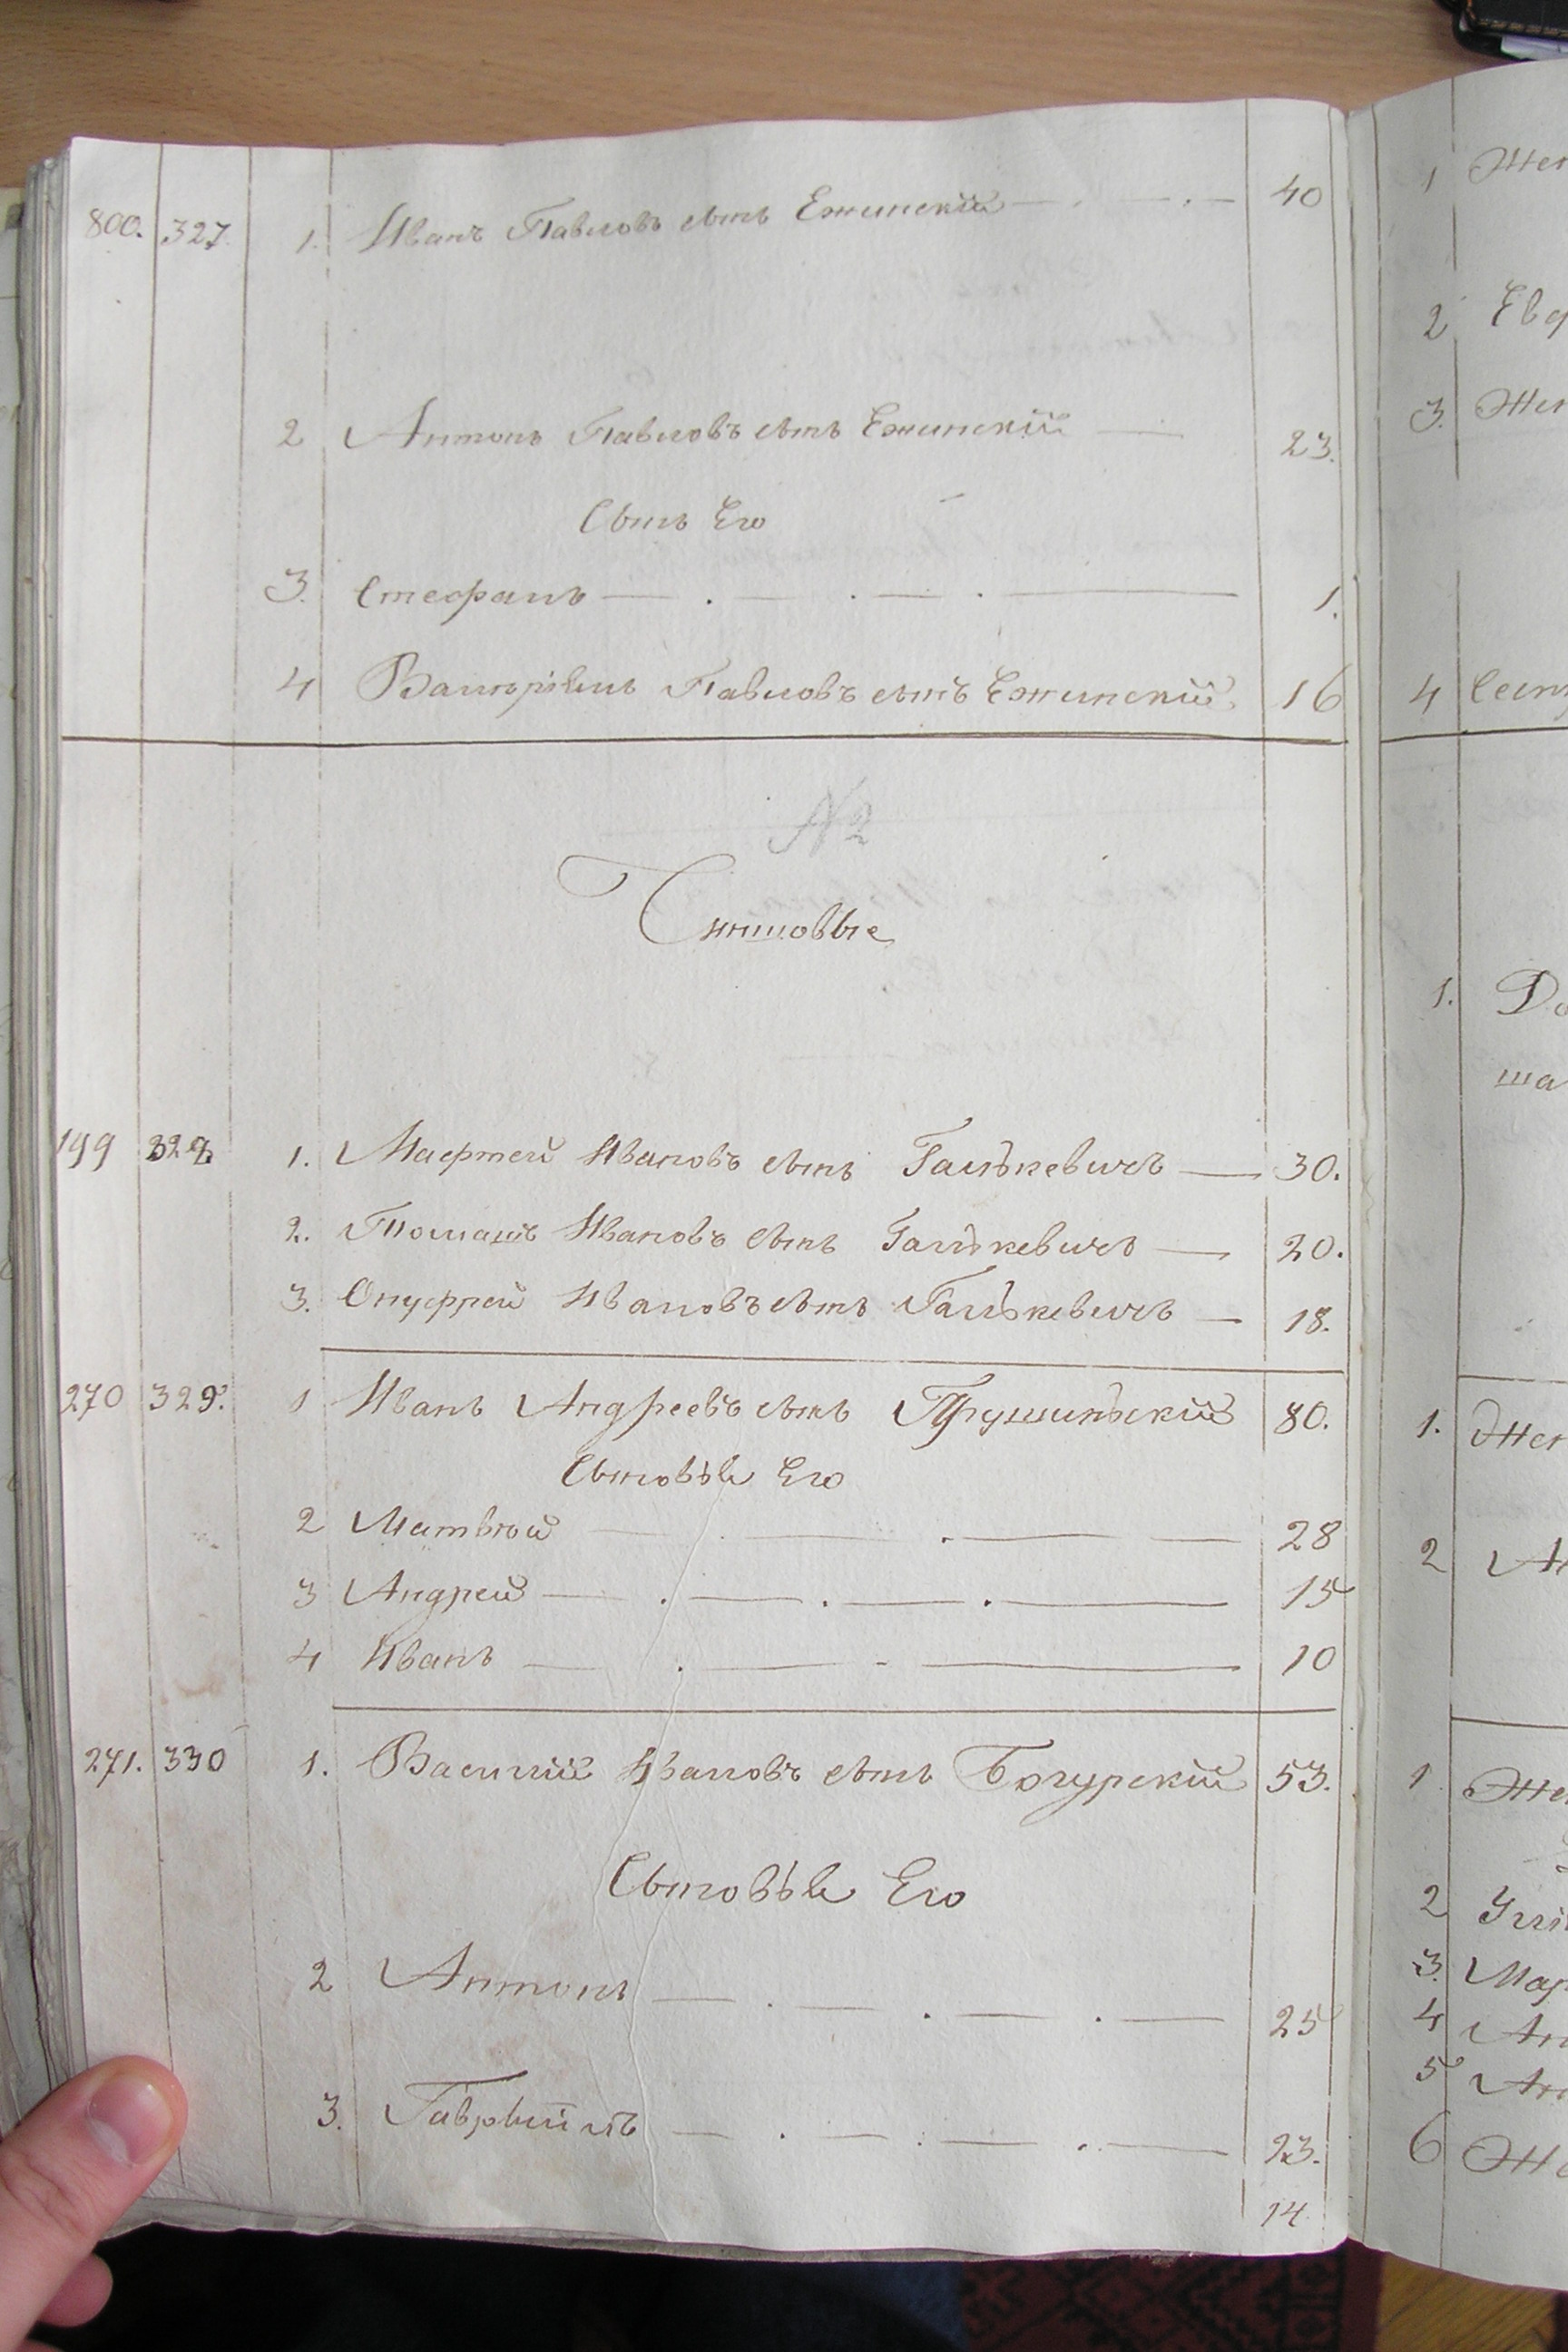 800. 327. 1. Иванъ Павловъ сынъ Ежинскій — 40
2 Антонъ Павловъ сынъ Ежинскій — 23.
Сынъ Его
3. Стефанъ — 1.
4 Валеріанъ Павловъ сынъ Ежинскій 16
N 2
Чиншовые
199 328 1. Мафтей Ивановъ сынъ Галькевичъ — 30.
2. Томашъ Ивановъ сынъ Галькевичъ — 20.
3. Онуфрей Ивановъ сынъ Галькевичъ — 18.
270 329. 1 Иванъ Андреевъ сынъ Прушинскій 80.
Сыновья Его
2 Матвѣй — 28
3 Андрей — 15
4 Иванъ — 10
271. 330 1. Василій Ивановъ сынъ Богурскій 53.
Сыновья Его
2 Антонъ — 25
3. Гавріилъ — 23.
14.
1 Жен
2 Евф
3. Жен
4 Сест
1. До
ша
1. Жен
2 Ан
1 Жен
2 Ул
3. Мар
4 Ан
5 Ан
6 Же